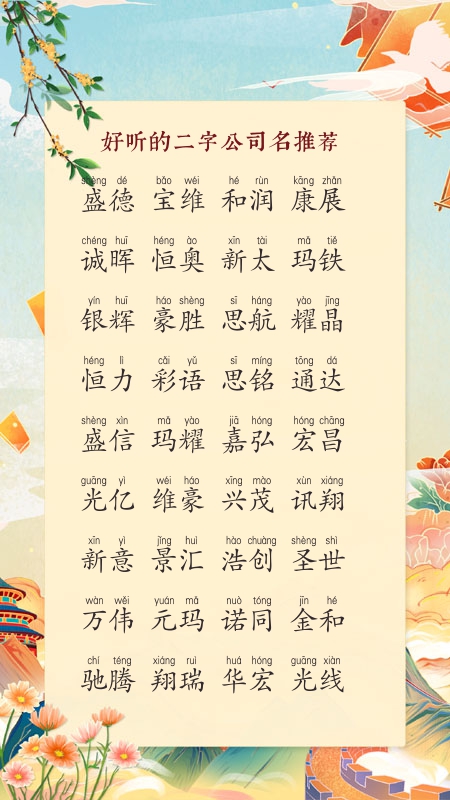 好听的二字公司名推荐
shèng dé bǎo wéi hé rùn kāng zhǎn
盛德 宝维 和润 康展
chéng huī héng ào xīn tài mǎ tiě
诚晖 恒奥 新太 玛铁
yín huī háo shèng sī háng yào jīng
银辉 豪胜 思航 耀晶
héng lì cǎi yǔ sī míng tōng dá
恒力 彩语 思铭 通达
shèng xìn mǎ yào jiā hóng hóng chāng
盛信 玛耀 嘉弘 宏昌
guāng yì wéi háo xīng mào xùn xiáng
光亿 维豪 兴茂 讯翔
xīn yì jǐng huì hào chuàng shèng shì
新意 景汇 浩创 圣世
wàn wěi yuán mǎ nuò tóng jīn hé
万伟 元玛 诺同 金和
chí téng xiáng ruì huá hóng guāng xiàn
驰腾 翔瑞 华宏 光线